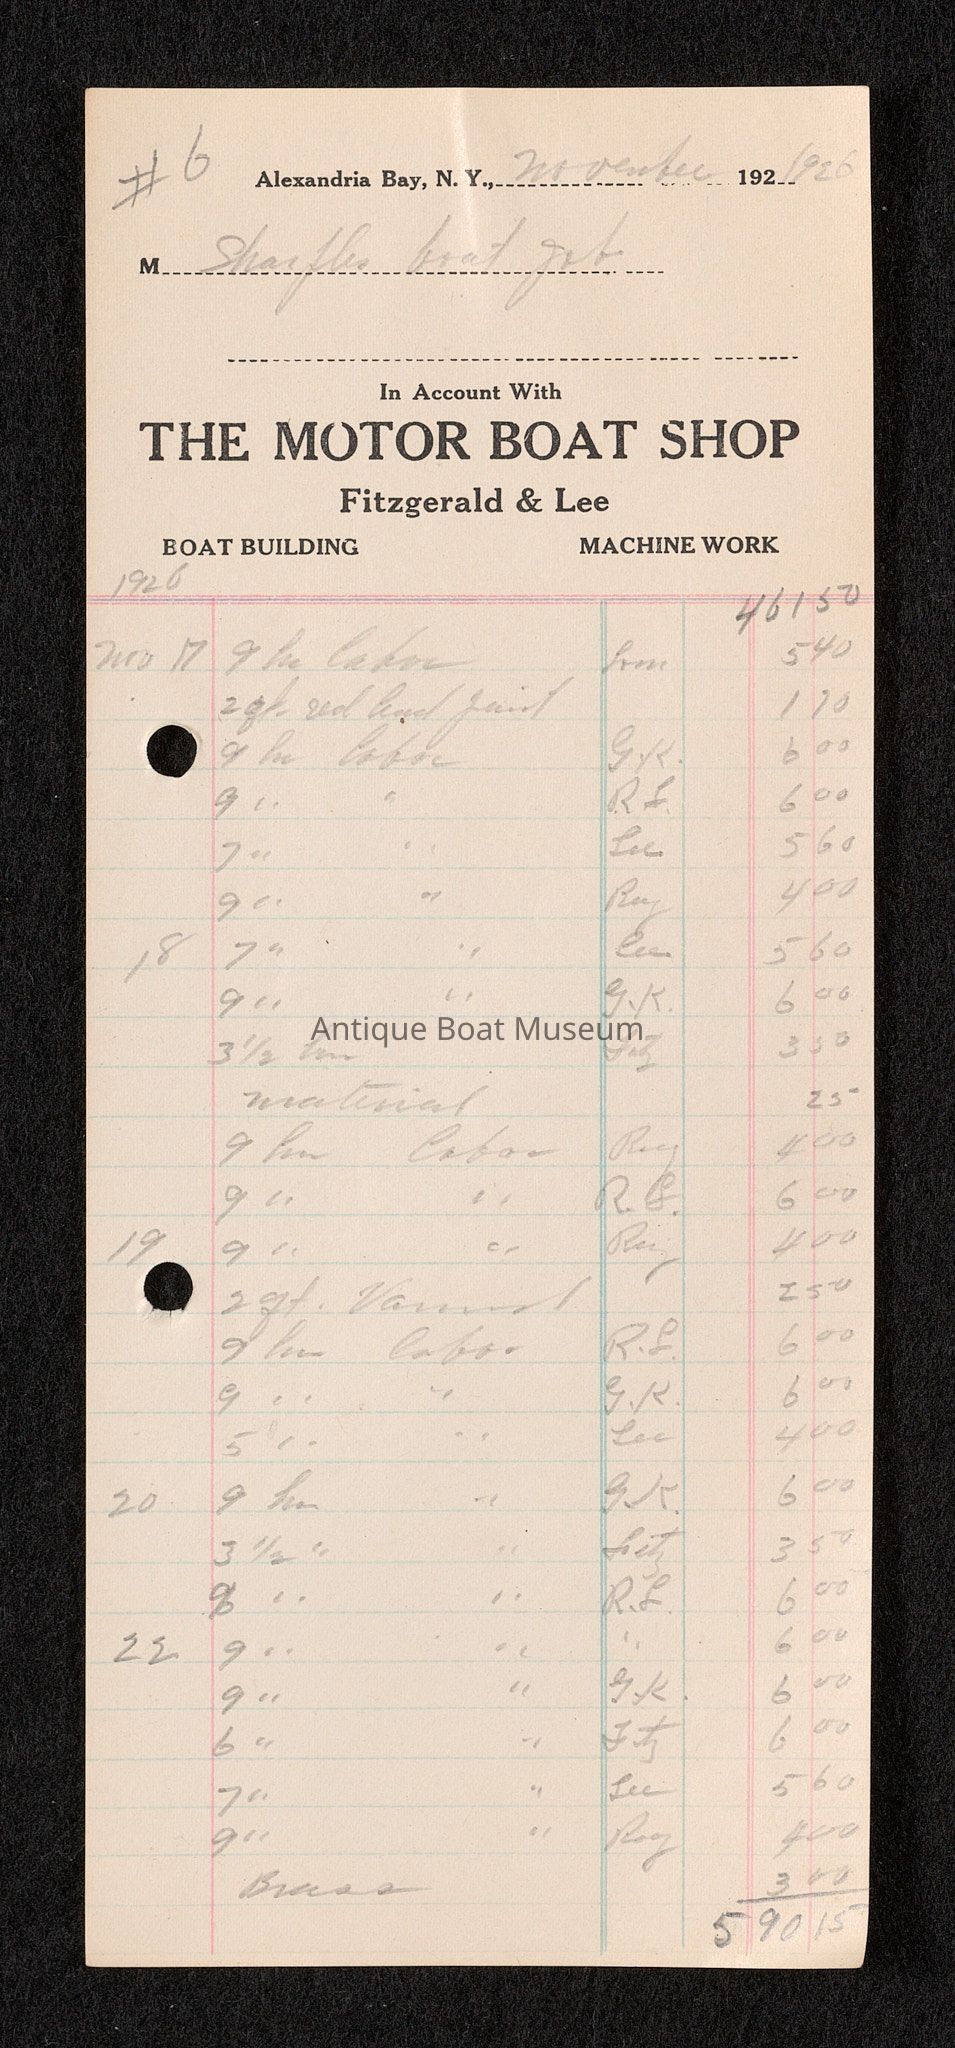 #6
Alexandria Bay, N. Y., November 192 1926
M Sharples boat job
In Account With
THE MOTOR BOAT SHOP
Fitzgerald & Lee
BOAT BUILDING MACHINE WORK
1926
461 50
Nov 17 9 hr labor 5 40
2 qt. red lead paint 1 70
9 hr labor G.K. 6 00
9 " " R.L. 6 00
7 " " Lee 5 60
9 " " Roy 4 00
18 7 " " Lee 5 60
9 " " G.K. 6 00
Antique Boat Museum
3 1/2 hrs Fitz 3 50
material 25
9 hrs labor Roy 4 00
9 " " R.L. 6 00
19 9 " " Roy 4 00
2 qt. Varnish 2 50
9 hrs labor R.L. 6 00
9 " " G.K. 6 00
5 " " Lee 4 00
20 9 hrs " G.K. 6 00
3 1/2 " " Fitz 3 50
9 " " R.L. 6 00
22 9 " " " 6 00
9 " " G.K. 6 00
6 " " Fitz 6 00
7 " " Lee 5 60
9 " " Roy 4 00
Brass 3 00
590 15